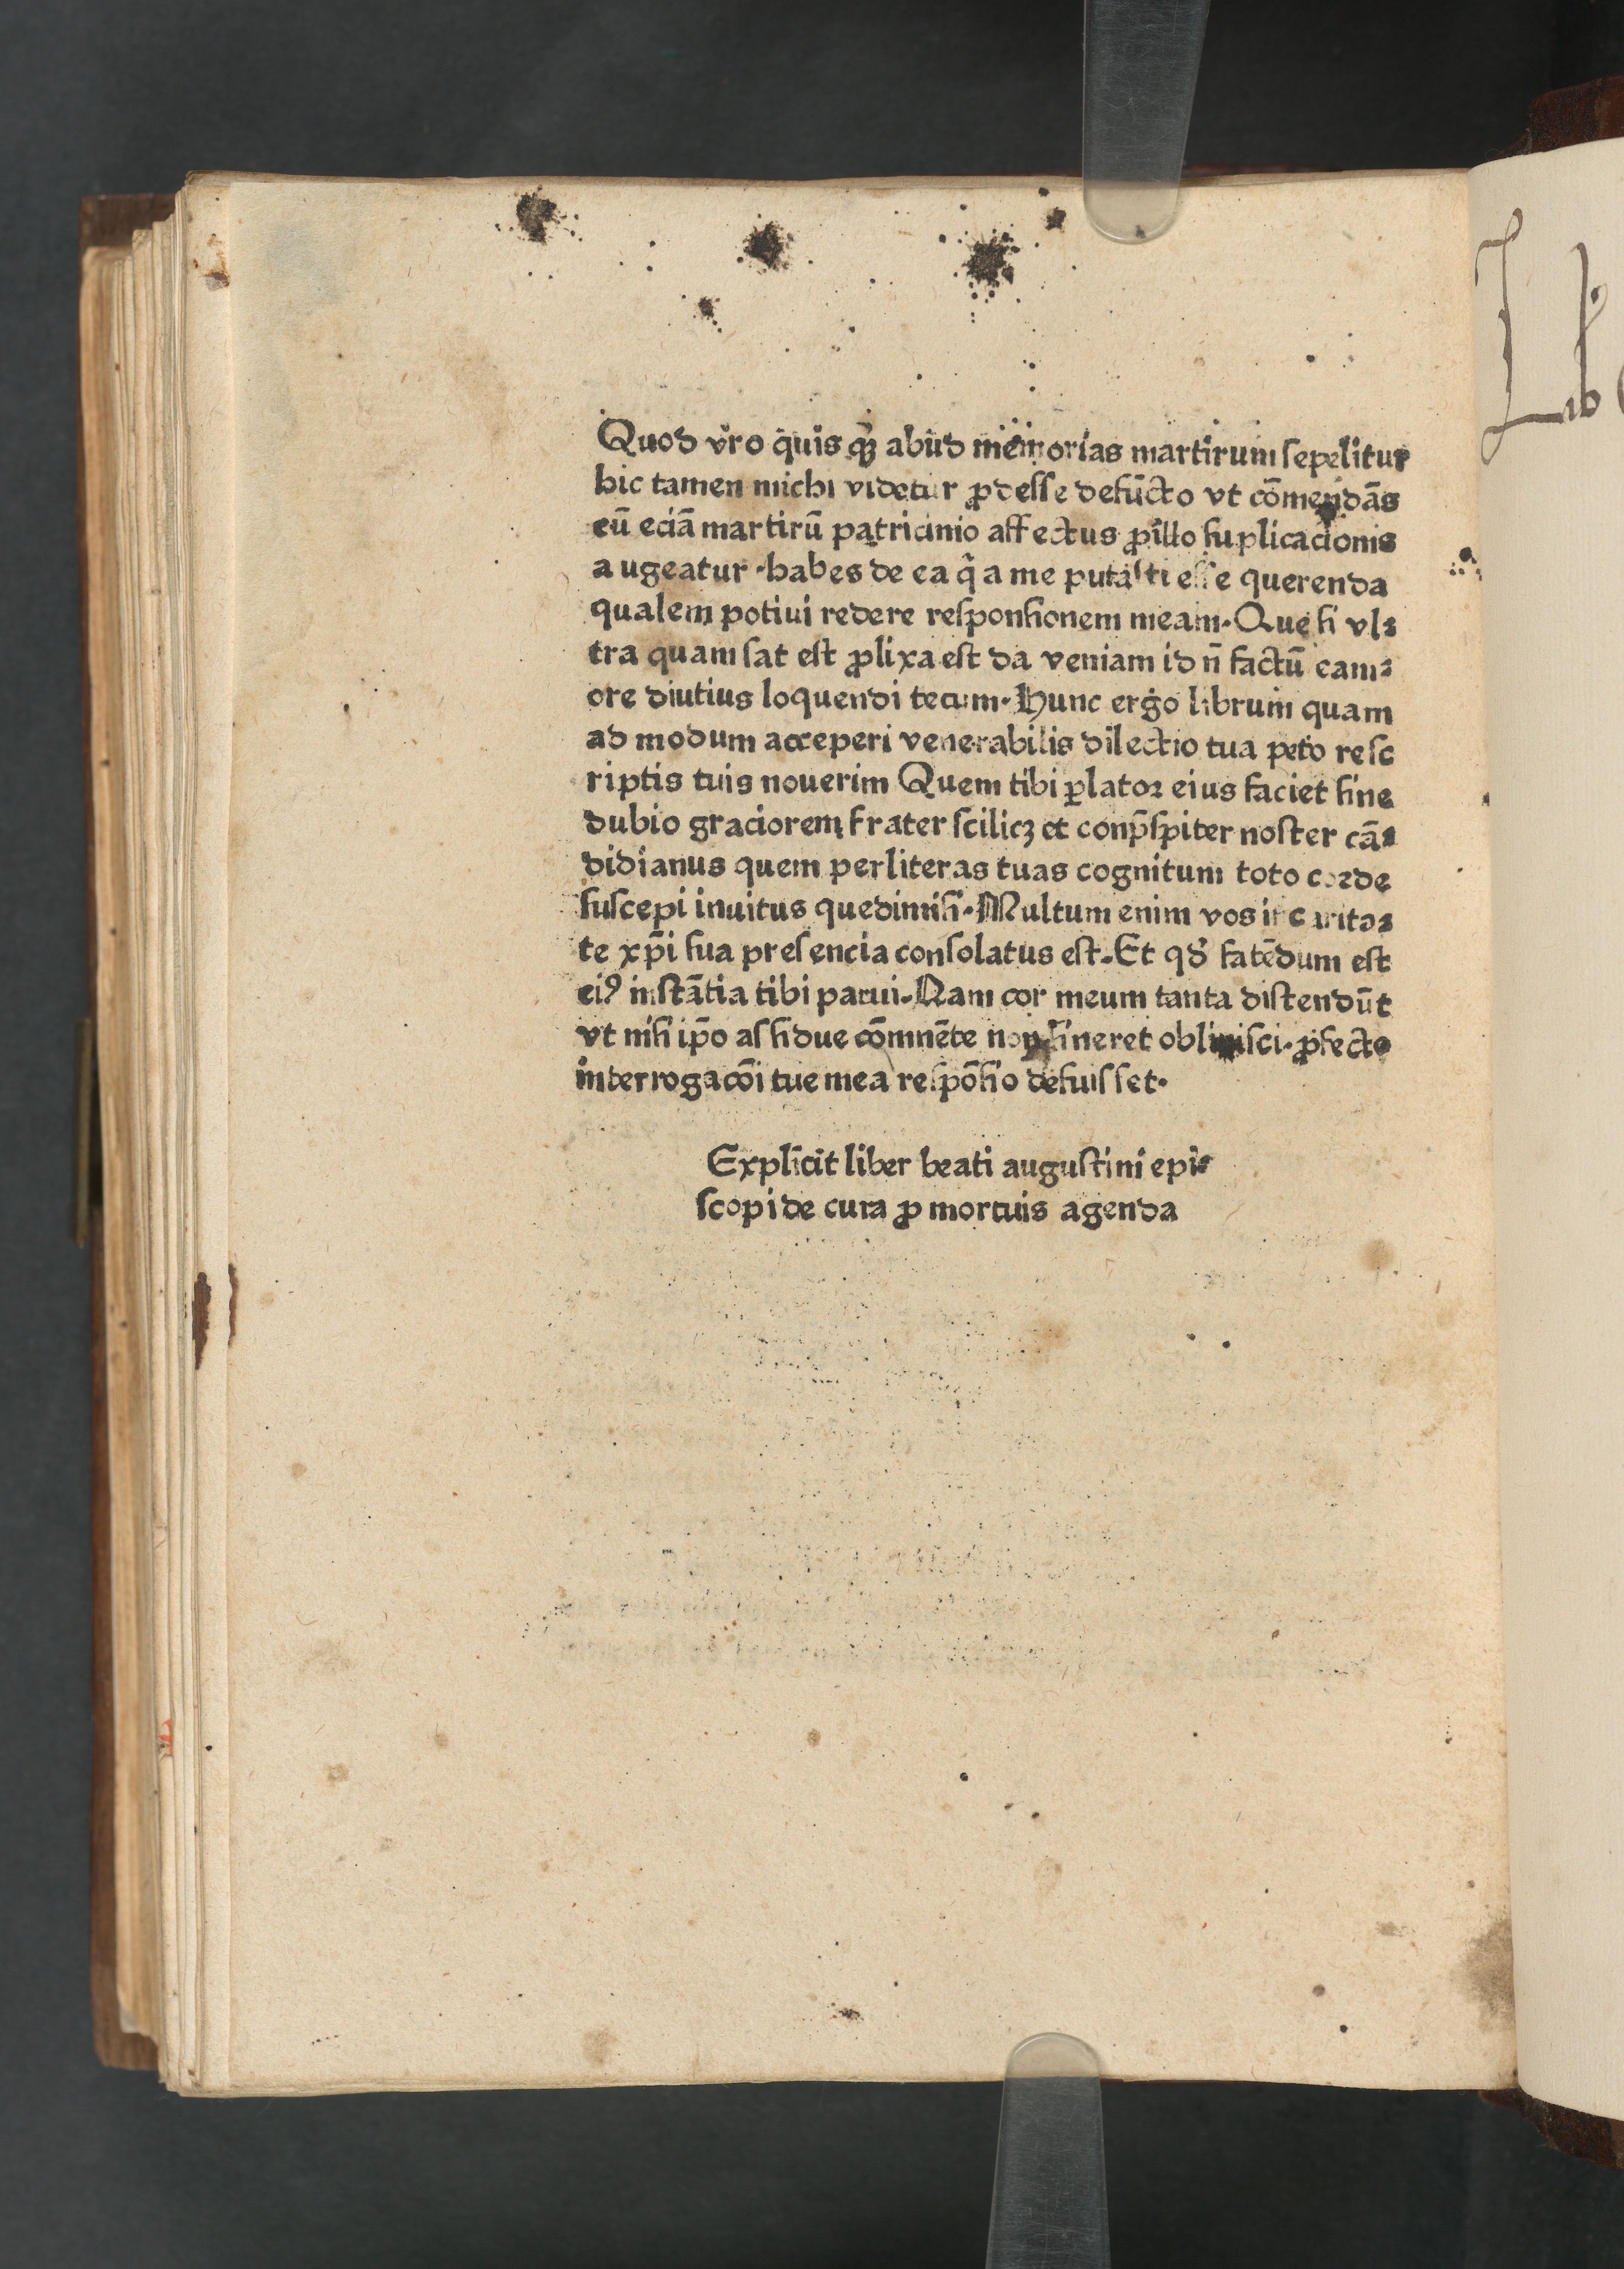 Quod vro quis ꝙȝ abud memorias martirum sepelitur
hic tamen michi videtur ꝓdesse defūcto vt cōmendās
eū eciā martirū patricinio affectus ꝓ illo suplicacionis
augeatur · habes de ea q̄ a me putasti esse querenda
qualem potiui redere responsionem meam · Que si vl⸗
tra quam sat est ꝓlixa est da veniam id n̄ factū eam⸗
ore diutius loquendi tecum · Hunc ergo librum quam
ad modum acceperi venerabilis dilectio tua peto resc
riptis tuis nouerim Quem tibi ꝑlator eius faciet sine
dubio graciorem frater scilicȝ et conp̄spiter noster cā⸗
didianus quem per literas tuas cognitum toto corde
suscepi inuitus que dimisi · Multum enim vos in carita⸗
te xp̄i sua presencia consolatus est · Et qd̄ fatēdum est
eiꝰ instātia tibi parui · Nam cor meum tanta distendūt
vt nisi ip̄o assidue cōmnēte non sineret obliuisci · ꝓfecto
interrogacōi tue mea respōsio defuisset ·
Explicit liber beati augustini epi⸗
scopi de cura ꝓ mortuis agenda
Lib